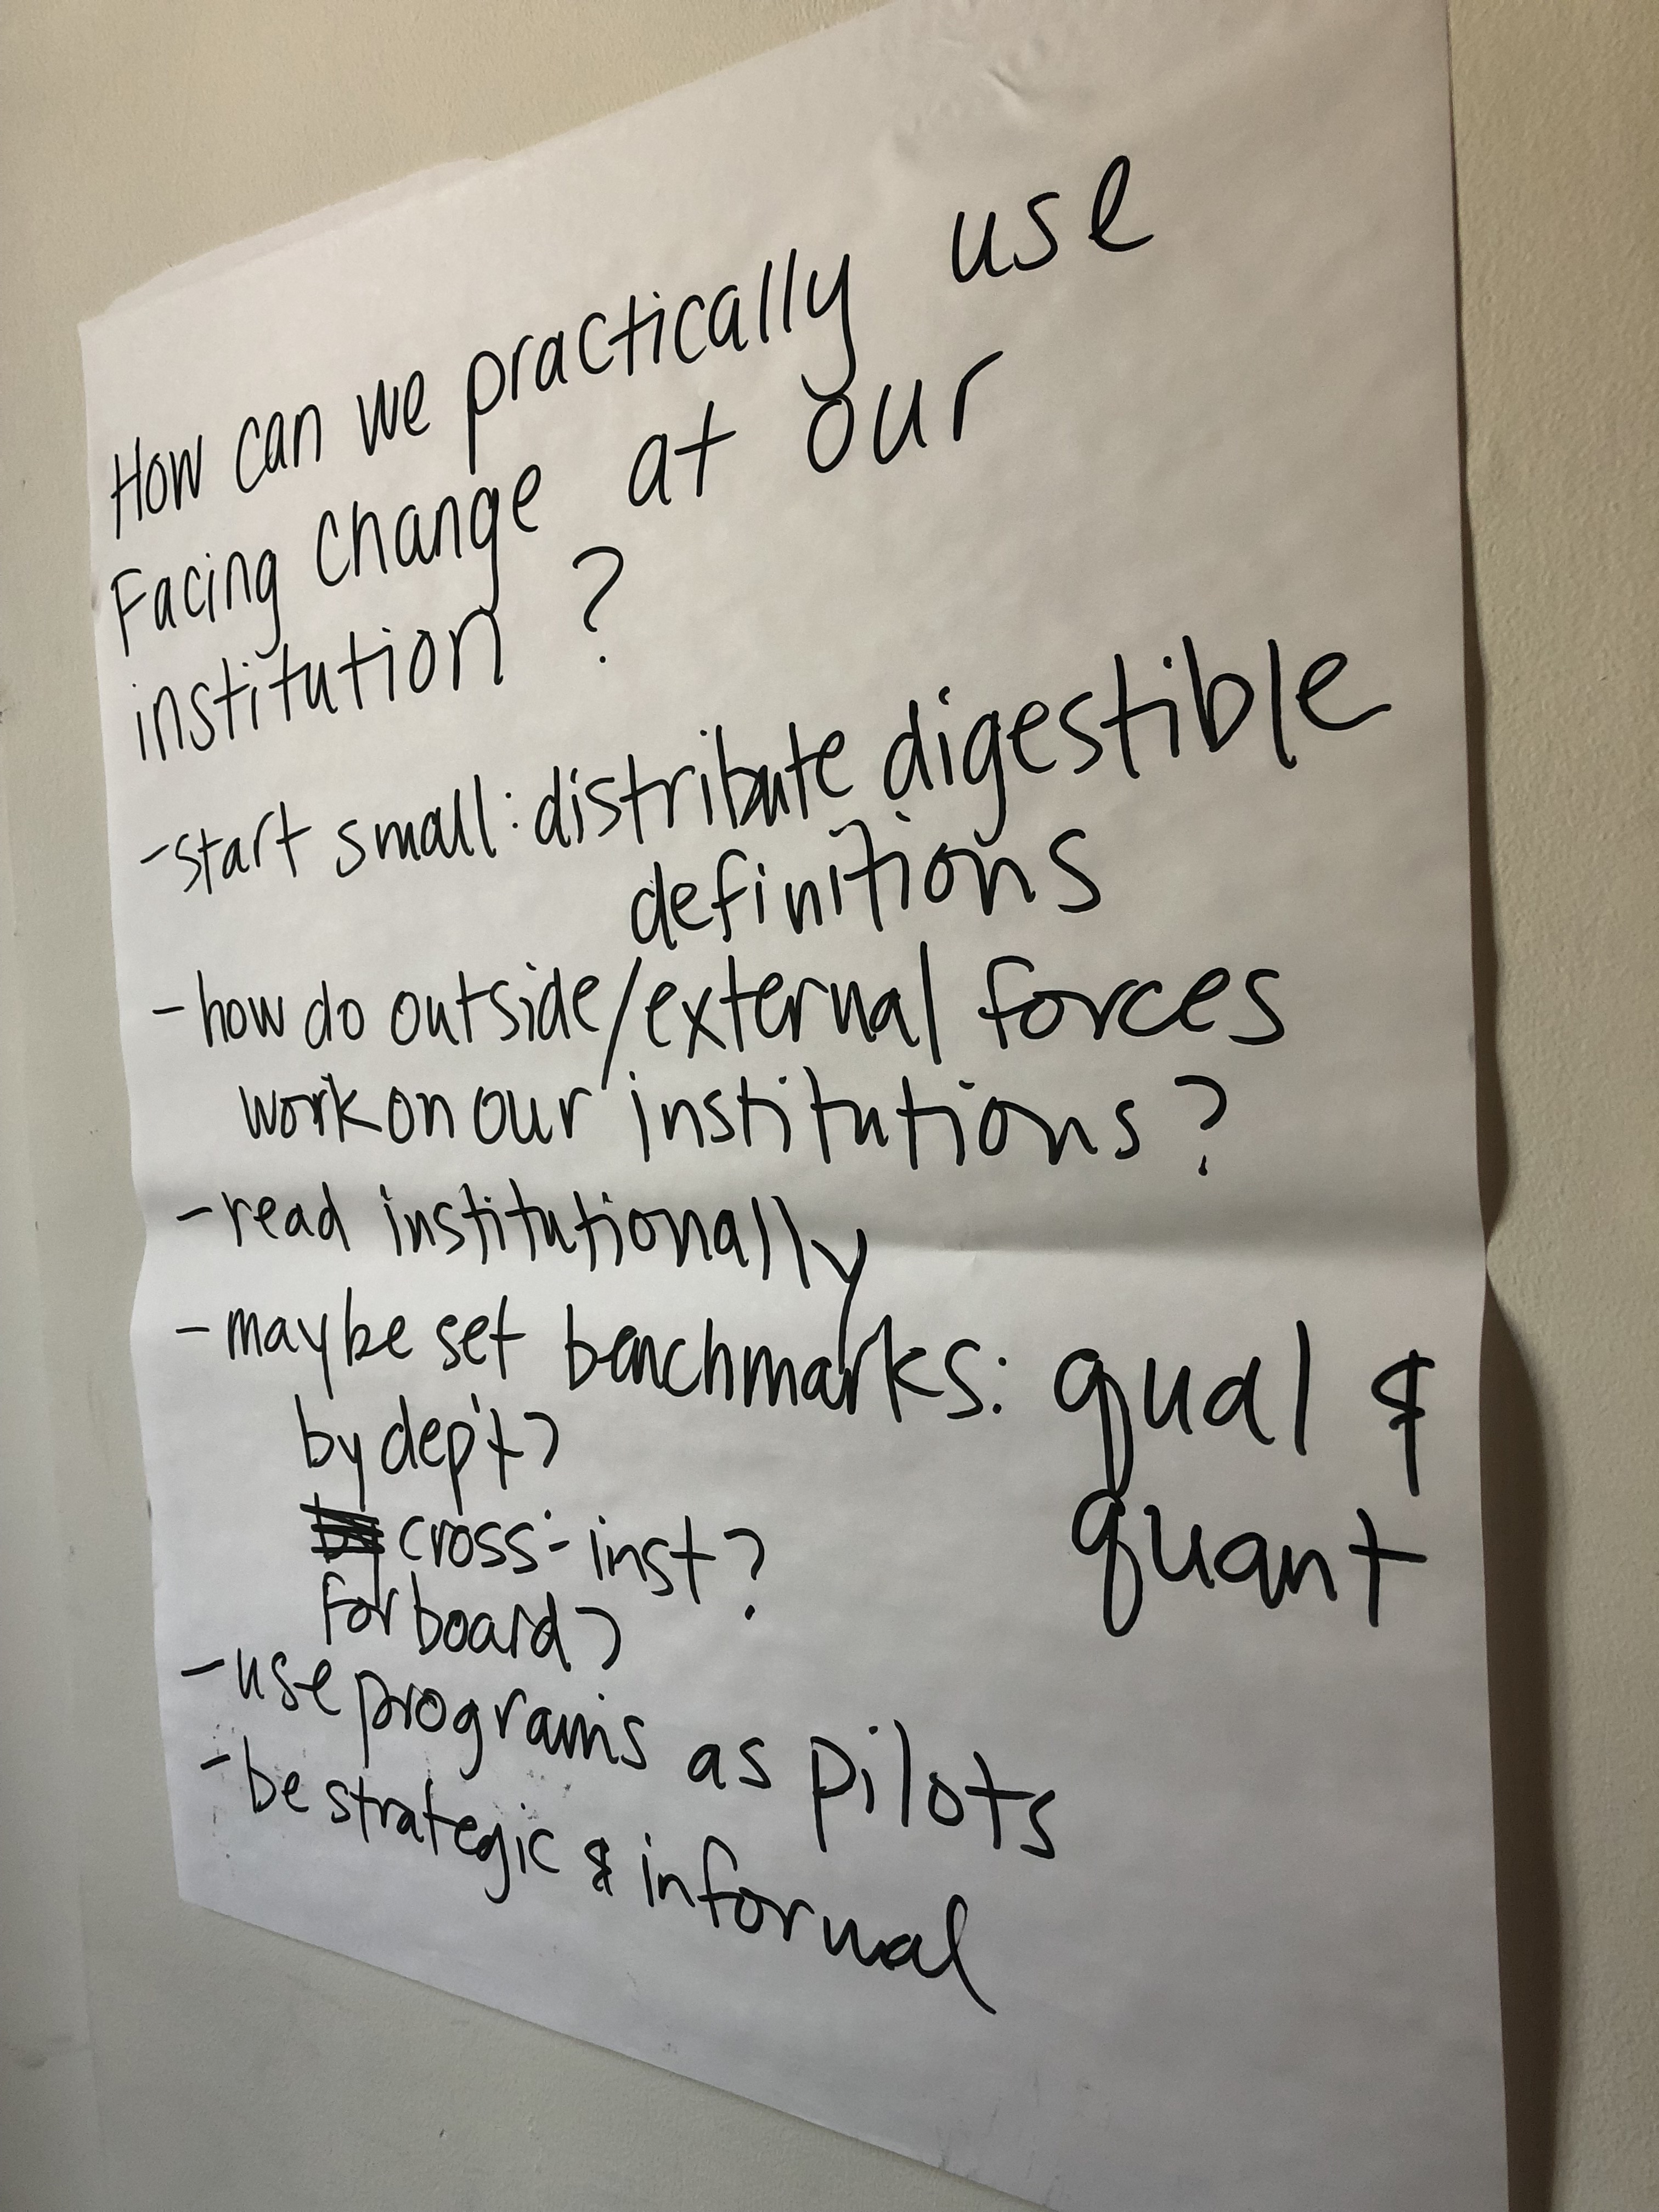 How can we practically use
Facing Change at our
institution ?
- start small: distribute digestible
definitions
- how do outside/external forces
work on our institutions ?
- read institutionally
- maybe set benchmarks: qual &
by dep't?
quant
cross-inst?
For board?
- use programs as pilots
- be strategic & informal